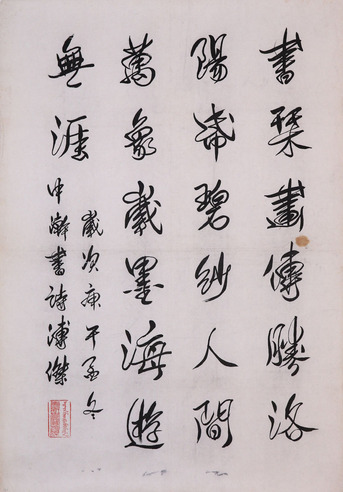 書琹畫傳勝洛
陽帋碧紗人間
萬象墨海遊
無涯
歲次庚午孟冬
中瀚書詩溥傑